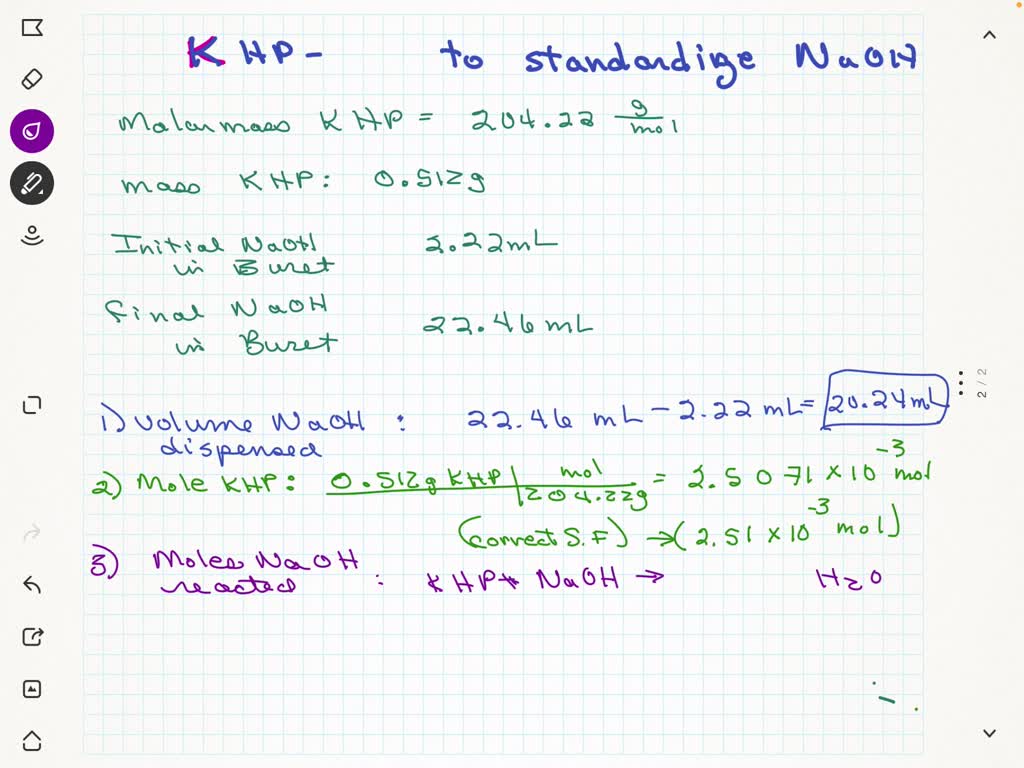 KHP - to standardize NaOH
Molar mass KHP = 204.22 g/mol
mass KHP: 0.512g
Initial NaOH 2.22mL
in Buret
final NaOH
22.46 mL
in Buret
2 / 2
1) Volume NaOH : 22.46 mL - 2.22 mL = 20.24mL
dispensed
2) Mole KHP: 0.512g KHP | mol / 204.22g = 2.5071 x 10^-3 mol
(correct S.F) → (2.51 x 10^-3 mol)
3) Moles NaOH
reacted : KHP + NaOH → H2O